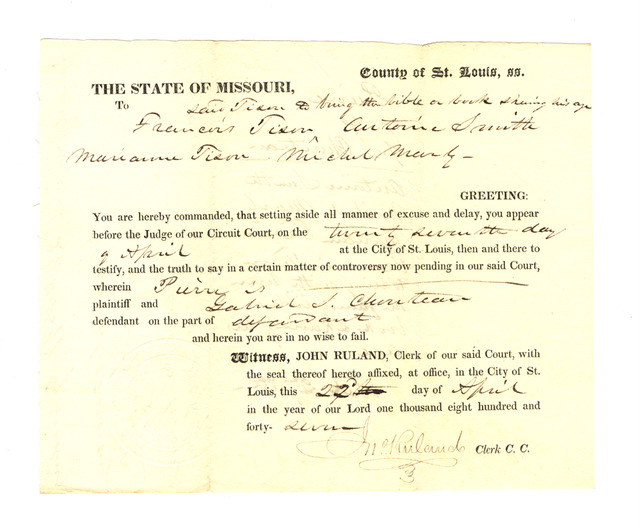 County of St. Louis, ss.
THE STATE OF MISSOURI,
To said Tison to bring the bible or book shewing his age
Francois Tison Antoine Smith
Marianne Tison Michel Marly -
GREETING:
You are hereby commanded, that setting aside all manner of excuse and delay, you appear
before the Judge of our Circuit Court, on the twenty seventh day
of April at the City of St. Louis, then and there to
testify, and the truth to say in a certain matter of controversy now pending in our said Court,
wherein Pierre is
plaintiff and Gabriel S. Chouteau
defendant on the part of defendant
and herein you are in no wise to fail.
Witness, JOHN RULAND, Clerk of our said Court, with
the seal thereof hereto affixed, at office, in the City of St.
Louis, this day of April
in the year of our Lord one thousand eight hundred and
forty- seven
Jno Ruland Clerk C. C.
3